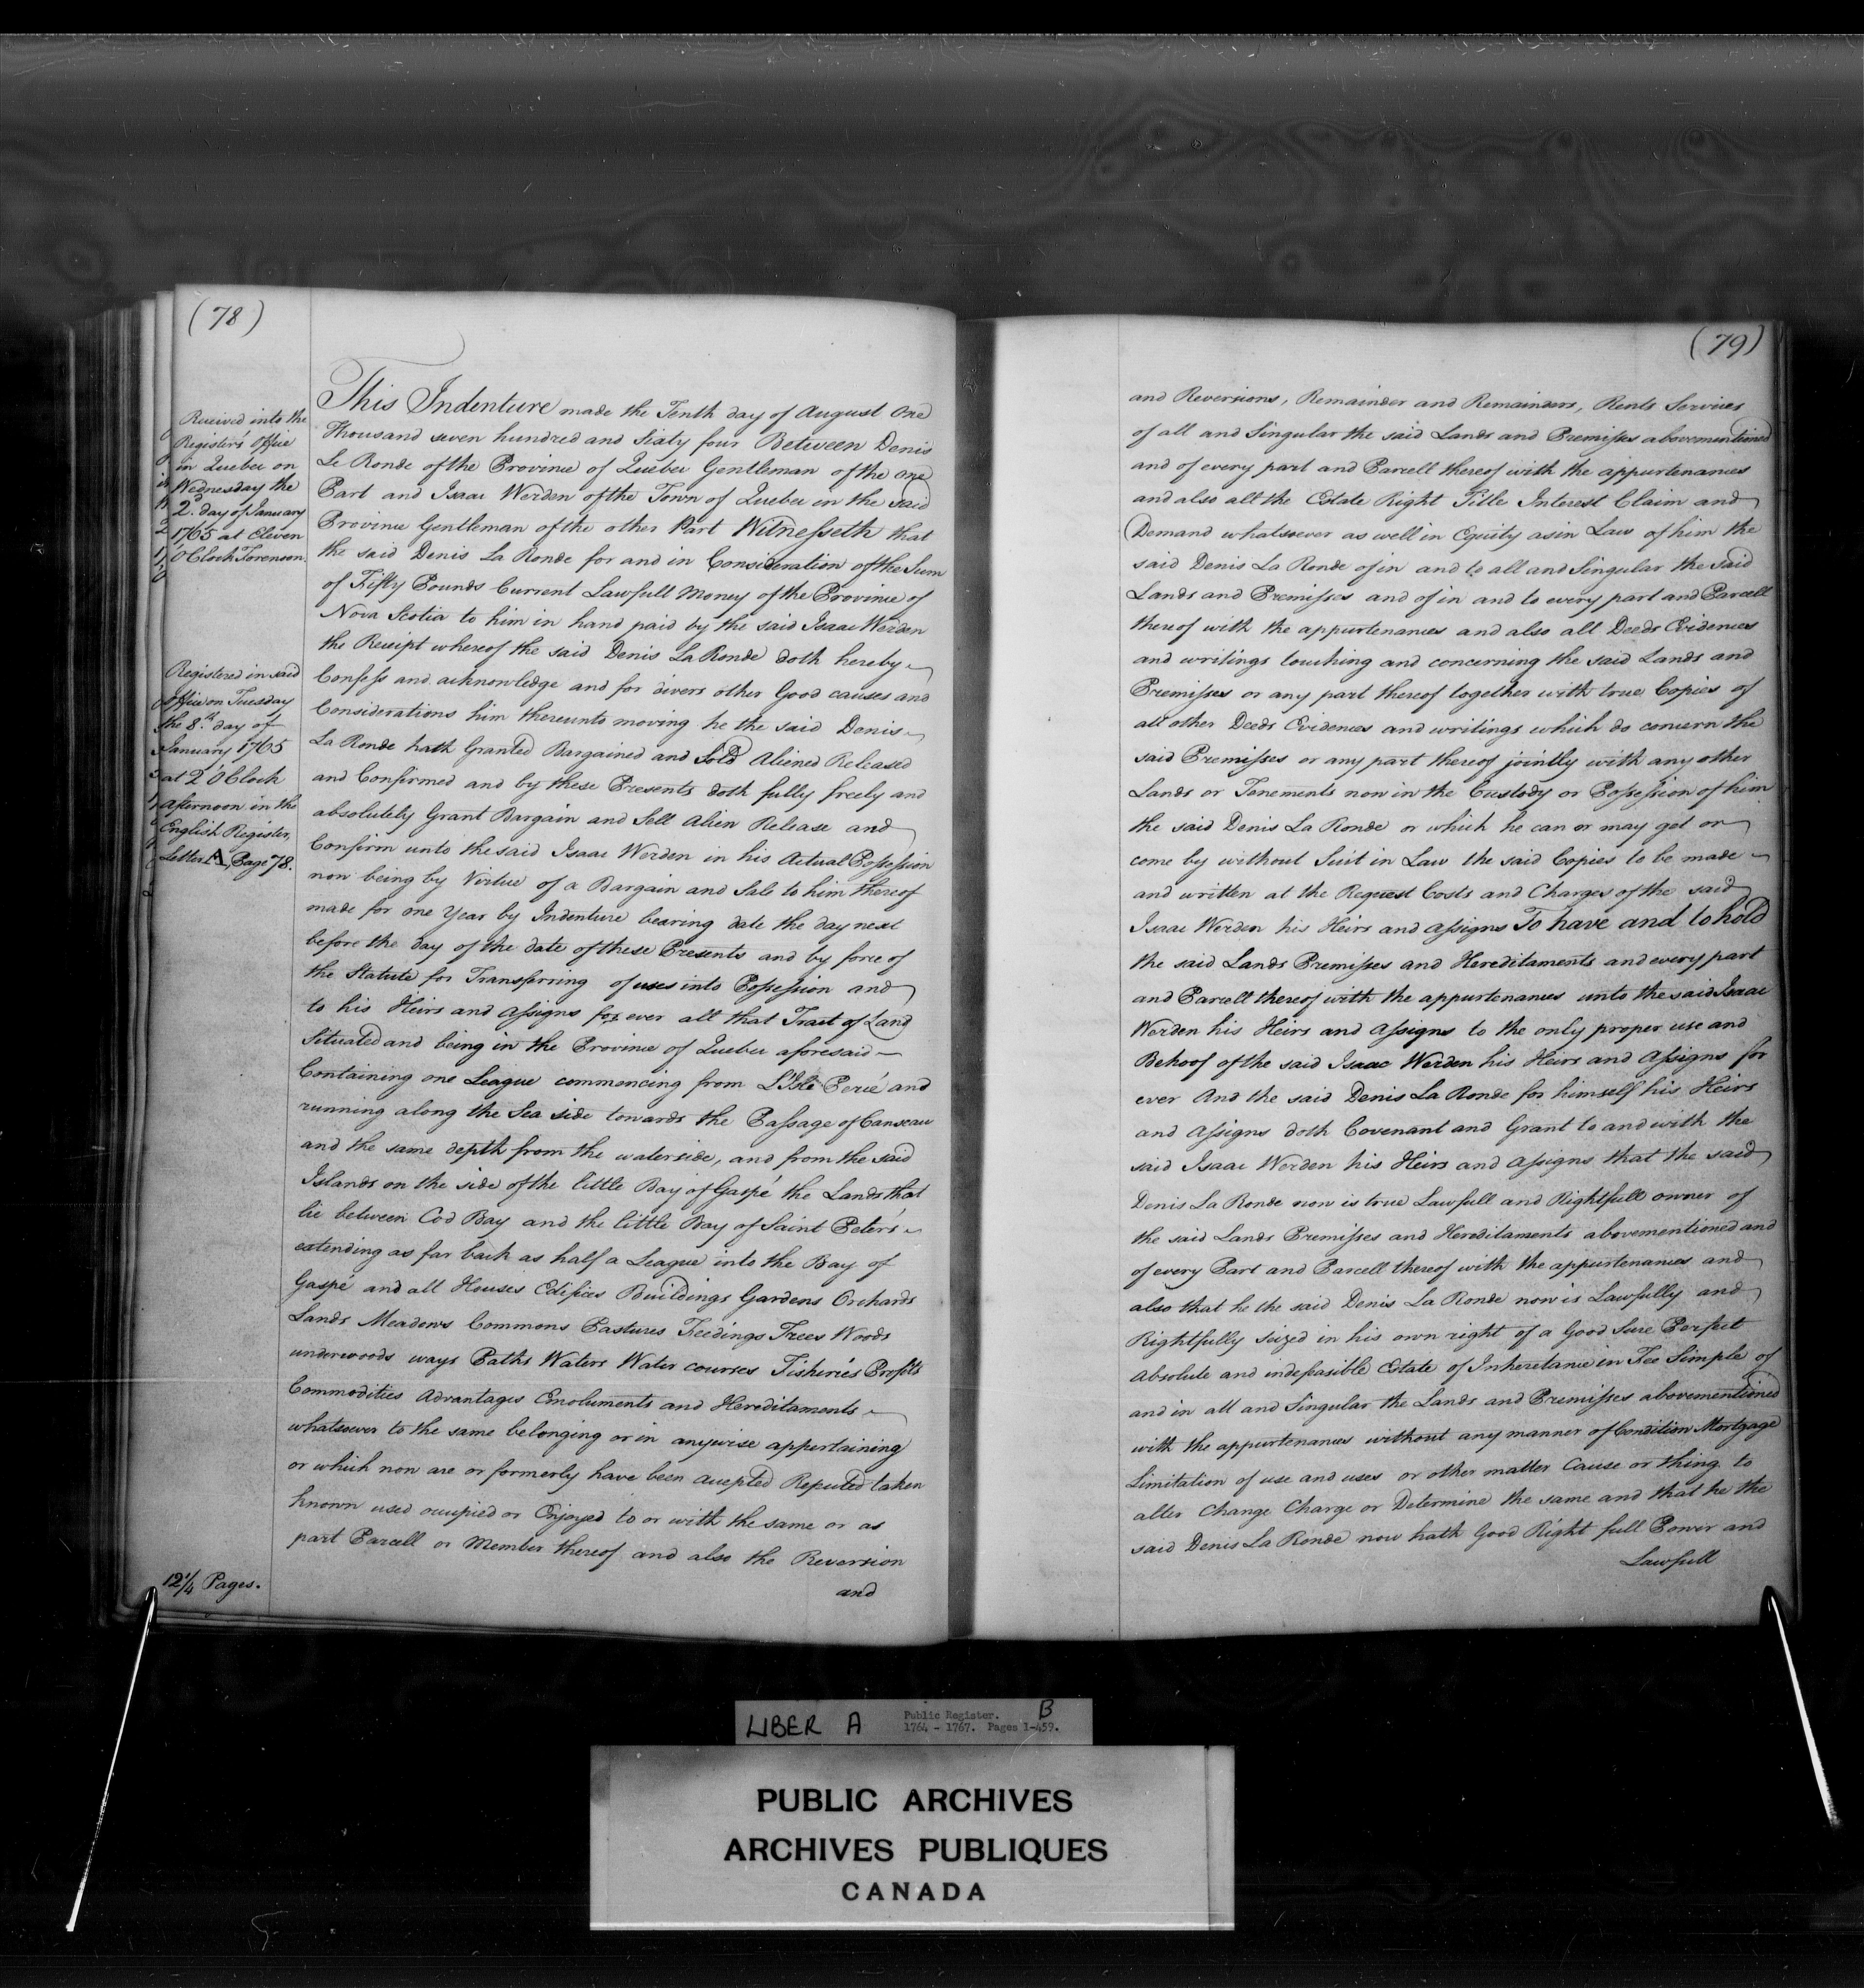 (78)
Received into the
Register's Office
in Quebec on
Wednesday the
2d. day of January
1765 at Eleven
O'Clock Forenoon.
Registered in said
Office on Tuesday
the 8th. day of
January 1765
at 2 O'Clock
afternoon in the
English Register,
Letter A, Page 78.
12 1/4 Pages.
This Indenture made the Tenth day of August One
Thousand seven hundred and Sixty four Between Denis
Le Ronde of the Province of Quebec Gentleman of the one
Part and Isaac Werden of the Town of Quebec in the said
Province Gentleman of the other Part Witnesseth that
the said Denis La Ronde for and in Consideration of the Sum
of Fifty Pounds Current Lawfull Money of the Province of
Nova Scotia to him in hand paid by the said Isaac Werden
the Receipt whereof the said Denis La Ronde doth hereby
Confess and acknowledge and for divers other Good causes and
Considerations him thereunto moving he the said Denis
La Ronde hath Granted Bargained and Sold Aliened Released
and Confirmed and by these Presents doth fully freely and
absolutely Grant Bargain and Sell Alien Release and
Confirm unto the said Isaac Werden in his Actual Possession
now being by Virtue of a Bargain and Sale to him thereof
made for one Year by Indenture bearing date the day next
before the day of the date of these Presents and by force of
the Statute for Transferring of uses into Possession and
to his Heirs and Assigns for ever all that Tract of Land
Situated and being in the Province of Quebec aforesaid
Containing one League commencing from L'Isle Percé and
running along the Sea side towards the Passage of Canseau
and the same depth from the waterside, and from the said
Islands on the side of the little Bay of Gaspé the Lands that
lie between Cod Bay and the little Bay of Saint Peter's
extending as far back as half a League into the Bay of
Gaspé and all Houses Edifices Buildings Gardens Orchards
Lands Meadows Commons Pastures Feedings Trees Woods
underwoods ways Paths Waters Water courses Fisheries Profits
Commodities Advantages Emoluments and Hereditaments
whatsoever to the same belonging or in anywise appertaining
or which now are or formerly have been accepted Reputed taken
known used occupied or Enjoyed to or with the same or as
part Parcell or Member thereof and also the Reversion
and
(79)
and Reversions, Remainder and Remainders, Rents Services
of all and Singular the said Lands and Premisses abovementioned
and of every part and Parcell thereof with the appurtenances
and also all the Estate Right Title Interest Claim and
Demand whatsoever as well in Equity as in Law of him the
said Denis La Ronde of in and to all and Singular the said
Lands and Premisses and of in and to every part and Parcell
thereof with the appurtenances and also all Deeds Evidences
and writings touching and concerning the said Lands and
Premisses or any part thereof together with true Copies of
all other Deeds Evidences and writings which do concern the
said Premisses or any part thereof jointly with any other
Lands or Tenements now in the Custody or Possession of him
the said Denis La Ronde or which he can or may get or
come by without Suit in Law the said Copies to be made
and written at the Request Costs and Charges of the said
Isaac Werden his Heirs and Assigns To have and to hold
the said Lands Premisses and Hereditaments and every part
and Parcell thereof with the appurtenances unto the said Isaac
Werden his Heirs and Assigns to the only proper use and
Behoof of the said Isaac Werden his Heirs and Assigns for
ever And the said Denis La Ronde for himself his Heirs
and Assigns doth Covenant and Grant to and with the
said Isaac Werden his Heirs and Assigns that the said
Denis La Ronde now is true Lawfull and Rightfull owner of
the said Lands Premisses and Hereditaments abovementioned and
of every Part and Parcell thereof with the appurtenances and
also that he the said Denis La Ronde now is Lawfully and
Rightfully seized in his own right of a Good Sure Perfect
Absolute and indefeasible Estate of Inheretance in Fee Simple of
and in all and Singular the Lands and Premisses abovementioned
with the appurtenances without any manner of Condition Mortgage
Limitation of use and uses or other matter Cause or thing to
alter Change Charge or Determine the same and that he the
said Denis La Ronde now hath Good Right full Power and
Lawfull
LIBER A Public Register. B
1764 - 1767. Pages 1-459.
PUBLIC ARCHIVES
ARCHIVES PUBLIQUES
CANADA